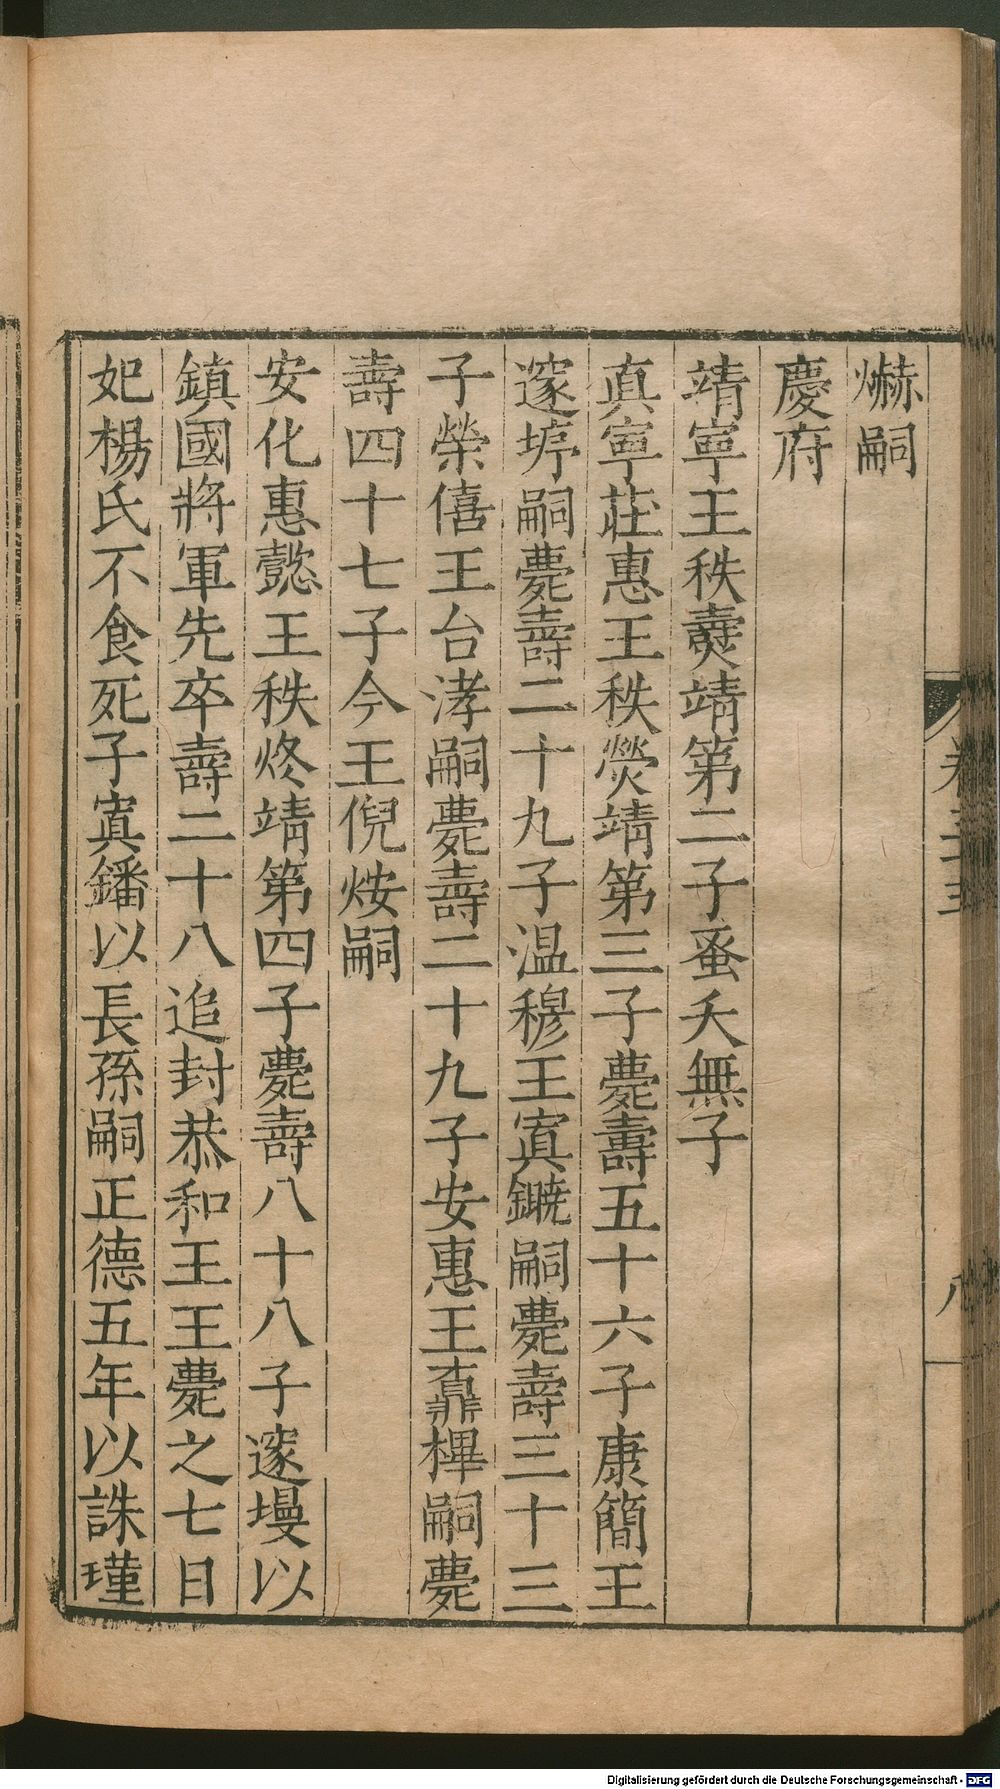 爀嗣
慶府
靖寧王秩𤑛靖第二子蚤夭無子
真寧莊惠王秩熒靖第三子薨壽五十六子康簡王
邃㘾嗣薨壽二十九子温穆王寘鐬嗣薨壽三十三
子榮僖王台涍嗣薨壽二十九子安惠王鼒㯅嗣薨
壽四十七子今王倪㶼嗣
安化惠懿王秩炵靖第四子薨壽八十八子邃墁以
鎮國將軍先卒壽二十八追封恭和王王薨之七日
妃楊氏不食死子寘鐇以長孫嗣正德五年以誅瑾
卷三十三
八
Digitalisierung gefördert durch die Deutsche Forschungsgemeinschaft - DFG